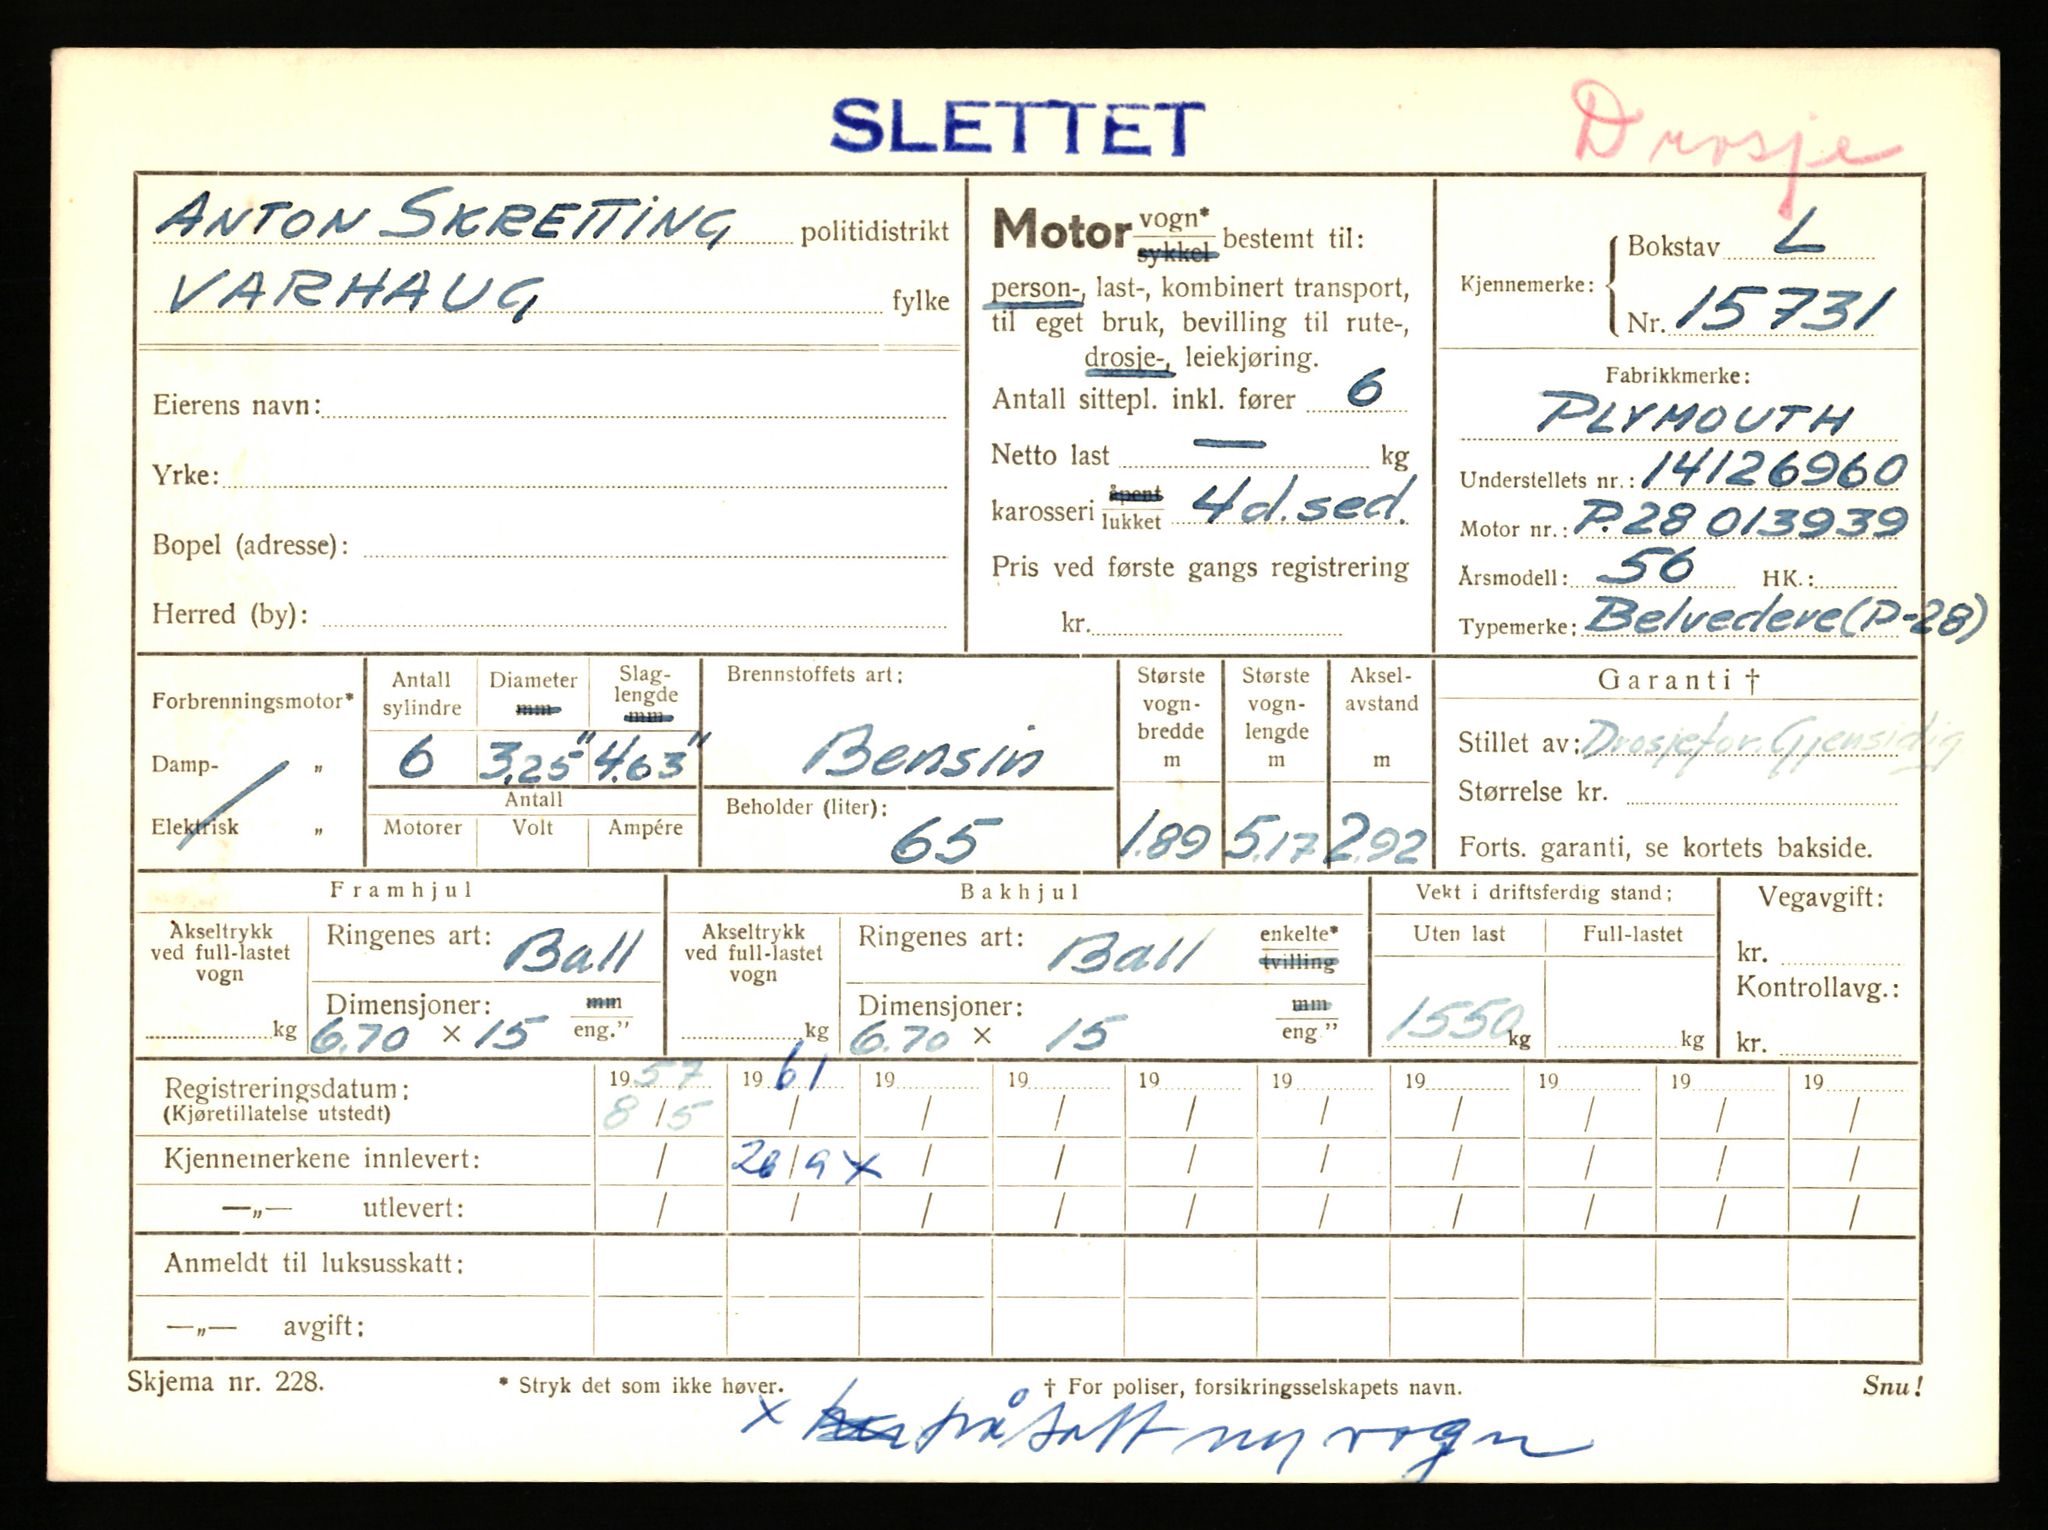 SLETTET
Drosje
ANTON SKRETTING politidistrikt
VARHAUG fylke
Eierens navn:
Yrke:
Bopel (adresse):
Herred (by):
Motor vogn* sykkel bestemt til:
person-, last-, kombinert transport,
til eget bruk, bevilling til rute-,
drosje-, leiekjøring.
Antall sittepl. inkl. fører 6
Netto last — kg
karosseri åpent lukket 4 d. sed.
Pris ved første gangs registrering
kr.
Kjennemerke: Bokstav L
Nr. 15731
Fabrikkmerke:
PLYMOUTH
Understellets nr.: 14126960
Motor nr.: P.28 013939
Årsmodell: 56 HK.:
Typemerke: Belvedere (P-28)
Forbrenningsmotor*
Damp- „
Elektrisk „
Antall sylindre
Diameter mm
Slag-lengde mm
6 3,25" 4.63"
Antall
Motorer Volt Ampére
Brennstoffets art:
Bensin
Beholder (liter):
65
Største vogn-bredde m
1.89
Største vogn-lengde m
5.17
Aksel-avstand m
2.92
Garanti †
Stillet av: Drosjefor. Gjensidig
Størrelse kr.
Forts. garanti, se kortets bakside.
Framhjul
Akseltrykk ved full-lastet vogn
kg
Ringenes art: Ball
Dimensjoner: mm
6.70 × 15 eng."
Bakhjul
Akseltrykk ved full-lastet vogn
kg
Ringenes art: Ball enkelte* tvilling
Dimensjoner: mm
6.70 × 15 eng."
Vekt i driftsferdig stand:
Uten last Full-lastet
1550 kg kg
Vegavgift:
kr.
Kontrollavg.:
kr.
Registreringsdatum: 1957 1961 19 19 19 19 19 19 19 19
(Kjøretillatelse utstedt) 8/5 / / / / / / / / /
Kjennemerkene innlevert: / 26/9 x / / / / / / / /
—„— utlevert: / / / / / / / / / /
Anmeldt til luksusskatt:
—„— avgift:
Skjema nr. 228. * Stryk det som ikke høver. † For poliser, forsikringsselskapets navn. Snu!
x påsatt ny vogn